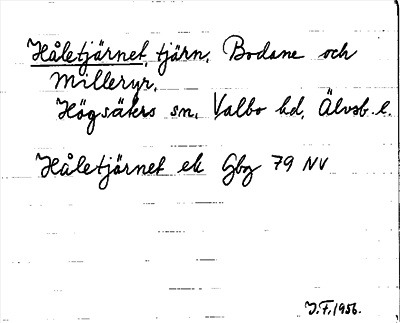 Håletjärnet, tjärn, Bodane och
Milleryr,
Högsäters sn, Valbo hd, Älvsb. l.
Håletjärnet ek Gbg 79 NV
J.F. 1956.